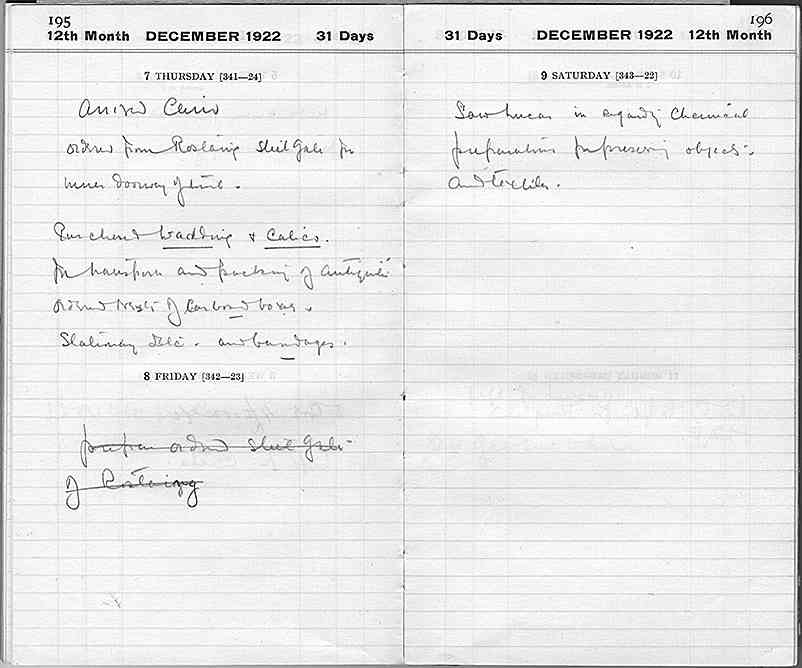 195
12th Month DECEMBER 1922 31 Days
7 THURSDAY [341—24]
Arrived Cairo
ordered from Rostaing Steel Gate for
inner doorway of tomb.
Purchased Wadding & Calico.
for transport and packing of antiquities
ordered of Carbord boxes.
Stationary etc. and bandages.
8 FRIDAY [342—23]
prepare ordered Steel Gate
of Rostaing
196
31 Days DECEMBER 1922 12th Month
9 SATURDAY [343—22]
Saw Lucas in regarding Chemical
preparations for preserving objects
and textiles.